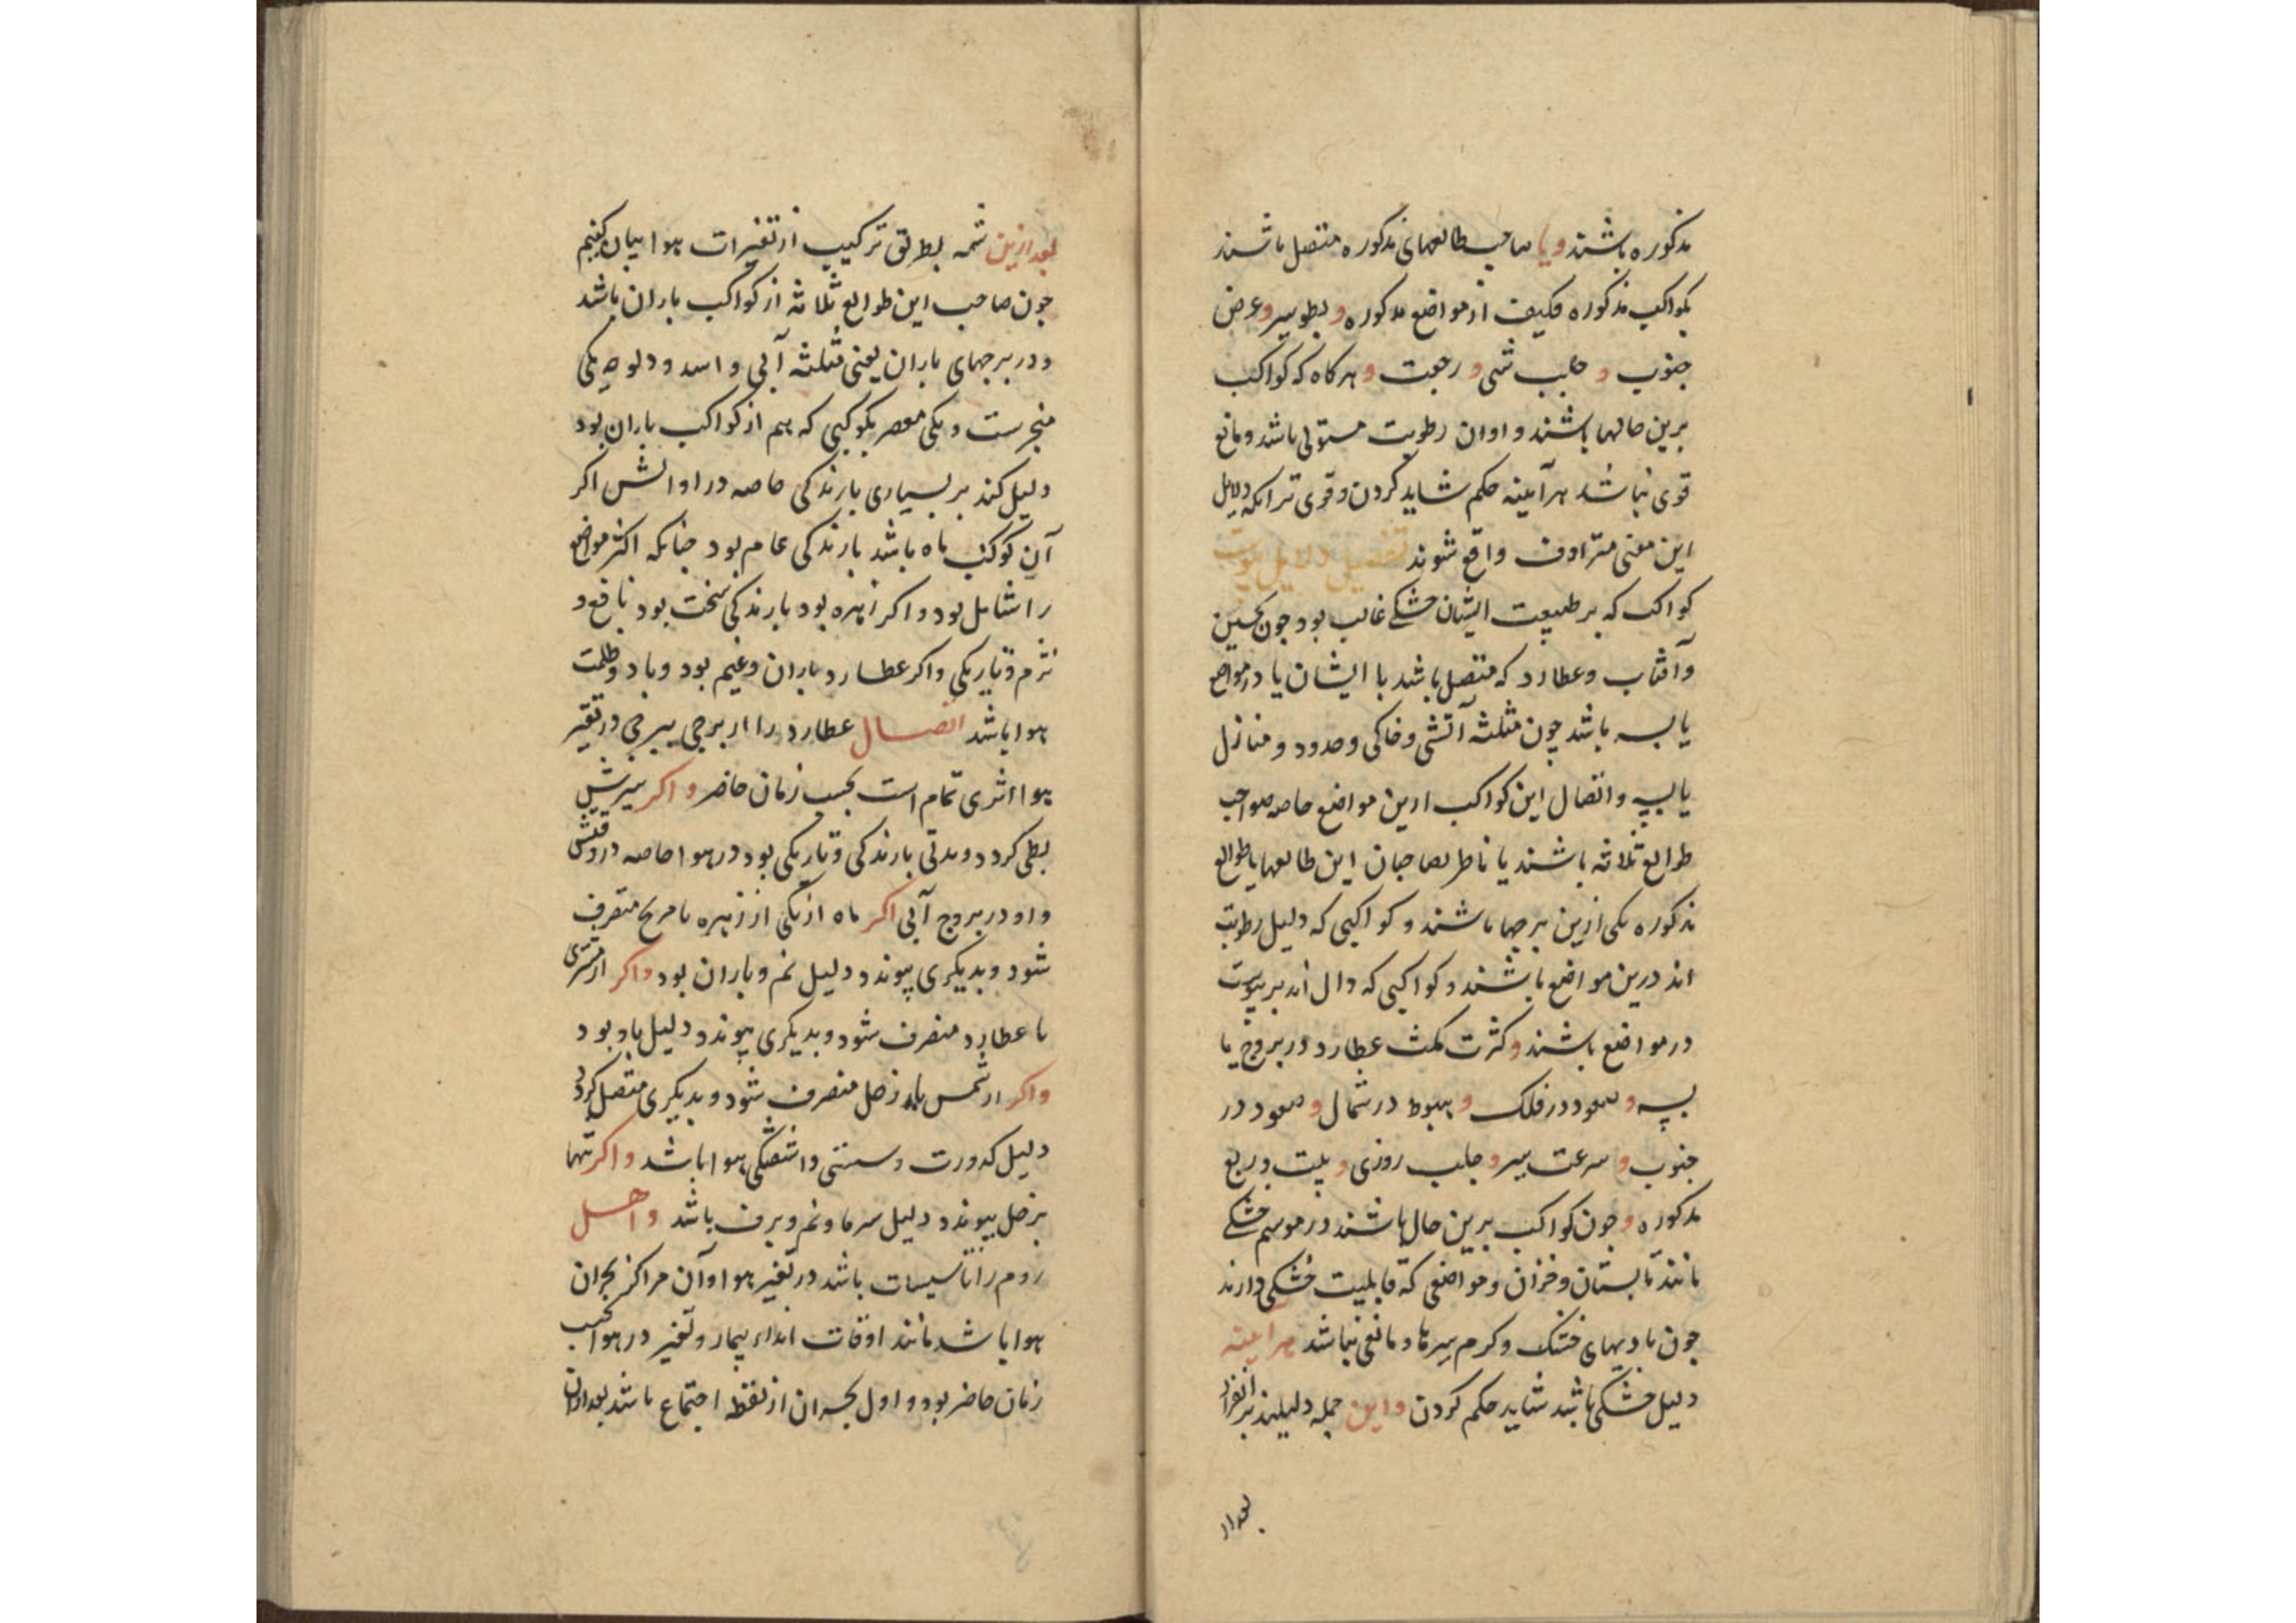 مذکوره باشند و یا صاحب طالعهای مذکوره متصل باشند
بکواکب مذکوره مکیف از مواضع مذکوره و بطو سیر و عرض
جنوب و جلب شبی و رجعت و هرکاه که کواکب
برین حالها باشند و اوان رطوبت مستولی باشد و مانع
قوی نباشد هرآینه حکم شاید کردن و قوی تر آنکه دلایل
این معنی مترادف واقع شوند تفصیل دلایل یبوست
کواکب که بر طبیعت ایشان خشکی غالب بود چون نحسین
و آفتاب و عطارد که متصل باشد با ایشان یا در مواضع
یابسه باشد چون مثلثه آتشی و خاکی و حدود و منازل
یابسه و اتصال این کواکب ازین مواضع خاصه صواحب
طوالع ثلاثه باشند یا ناظر بصاحبان این طالعها یا طوالع
مذکوره یکی ازین برجها باشند و کواکبی که دلیل رطوبت
اند درین مواضع باشند و کواکبی که دال اند بر یبوست
در مواضع باشند و کثرت مکث عطارد در بروج یا
بسه و صعود در فلک و هبوط در شمال و صعود در
جنوب و سرعت سیر و جلب روزی و بیت و ربع
مذکوره و چون کواکب برین حال باشند در موسم خشکی
مانند تابستان و خزان و مواضعی که قابلیت خشکی دارند
چون بادیهای خشک و کرم سیرها و مانعی نباشد هرآینه
دلیل خشکی باشد شاید حکم کردن و این جمله دلیلند بر انفراد
بعد از
بعد ازین شمه بطریق ترکیب از تغیرات هوا بیان کنیم
چون صاحب این طوالع ثلاثه از کواکب باران باشد
و در برجهای باران یعنی مثلثه آبی و اسد و دلو چه یکی
منجرست و یکی معصر بکوکبی که هم از کواکب باران بود
دلیل کند بر بسیاری بارندکی خاصه در اوانش اکر
آن کوکب ماه باشد بارندکی عام بود چنانکه اکثر مواضع
را شامل بود و اکر زهره بود بارندکی سخت بود نافع و
نرم و تاریکی و اکر عطارد باران و غیم بود و باد و ظلمت
هوا باشد اتصال عطارد را از برجی ببرجی در تغیر
هوا اثری تمام است بحسب زمان حاضر و اکر سیرش
بطی کردد و مدتی بارندکی و تاریکی بود در هوا خاصه در وقتش
و او در بروج آبی اکر ماه از یکی از زهره یا مریخ منصرف
شود و بدیکری پیوندد دلیل نم و باران بود و اکر از مشتری
یا عطارد منصرف شود و بدیکری پیوندد دلیل باد بود
و اکر از شمس یا زحل منصرف شود و بدیکری متصل کردد
دلیل کدورت و سستی و آشفتکی هوا باشد و اکر تنها
بزحل پیوندد دلیل سرما و نم و برف باشد و اهل
روم را تاسیسات باشد در تغیر هوا و آن مراکز بحران
هوا باشد مانند اوقات بیمار و تغیر در هوا بحسب
زمان حاضر بود و اول بحران از نقطه اجتماع باشد بعد از آن